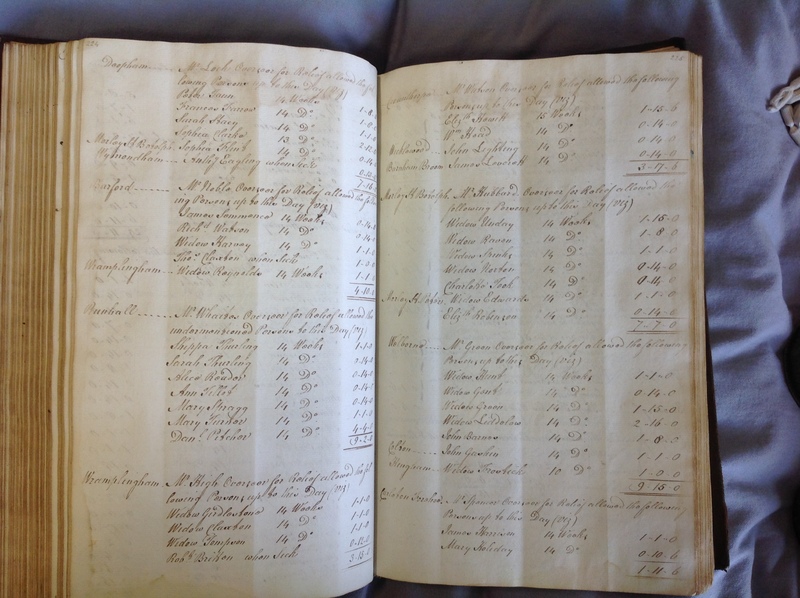 Deopham Mr. Lock Overseer for Relief allowed the fol
lowing Persons up to this Day (Viz)
14 Weeks
Frances Farrow 14 Do 1-8-0
Sarah Stacy 14 Do
Sophia Clarke 13 Do
Morley St. Botolph Sophia Flint 14 Do
Wymondham when Sick
7-16-
Barford Mr. Noble Overseer for Relief allowed the follow
ing Persons up to this Day (Viz)
James Simmonds 14 Weeks 0-14-0
Richd. Watson 14 Do 0-14-0
Widow Harvey 14 Do 1-1-0
Thos. Claxton when Sick 1-0-0
Wramplingham Widow Reynolds 14 Weeks 1-1-0
4-10-0
Bunwell Mr. Wharton Overseer for Relief allowed the
undermentioned Persons to this Day (Viz)
Thurling 14 Weeks 1-1-0
Sarah Thurling 14 Do 0-14-0
14 Do 0-14-0
Ann 14 Do 0-14-0
Mary Spragg 14 Do 1-1-0
Mary 14 Do 4-4-0
Danl. Pitcher 14 Do 9-2-0
Wramplingham Mr. High Overseer for Relief allowed the fol
lowing Persons up to this Day (Viz)
Widow Girdlestone 14 Weeks 1-1-0
Widow Claxton 14 Do 1-1-0
Widow Tompson 14 Do 1-1-0
Robt. Britton when Sick 0-12-0
3-15-0
Mr. Watson Overseer for Relief allowed the following
Persons up to this Day (Viz)
Elizth. Howett 15 Weeks 1-15-6
Wm. Head 14 Do 0-14-0
Hackford John Lighting 14 Do 0-14-0
Barnham Broom James Lovett 14 Do 0-14-0
3-17-6
Morley St. Botolph Mr. Hubbard Overseer for Relief allowed the
following Persons up to this Day (Viz)
Widow Unday 14 Weeks 1-15-0
Widow Raven 14 Do 1-8-0
Widow Spinks 14 Do 1-1-0
Widow Norton 14 Do 0-14-0
Charlotte 14 Do 0-14-0
Morley St. Peters Widow Edwards 14 Do 1-1-0
Elizth. Robinson 14 Do 0-14-0
7-7-0
Welborne Mr. Green Overseer for Relief allowed the following
Persons up to this Day (Viz)
Widow Hunt 14 Weeks 1-1-0
Widow Gent 14 Do 0-14-0
Widow Green 14 Do 1-15-0
Widow Liddelow 14 Do 2-16-0
John Barnes 14 Do 1-8-0
Colton John Goshen 14 Do 1-1-0
Kingham Widow Frosbeck 10 Do 1-0-0
9-15-0
Carleton Forehoe Mr. Spencer Overseer for Relief allowed the following
Persons up to this Day (Viz)
James Harrison 14 Weeks 1-1-0
Mary Holiday 14 Do 0-10-6
1-11-6